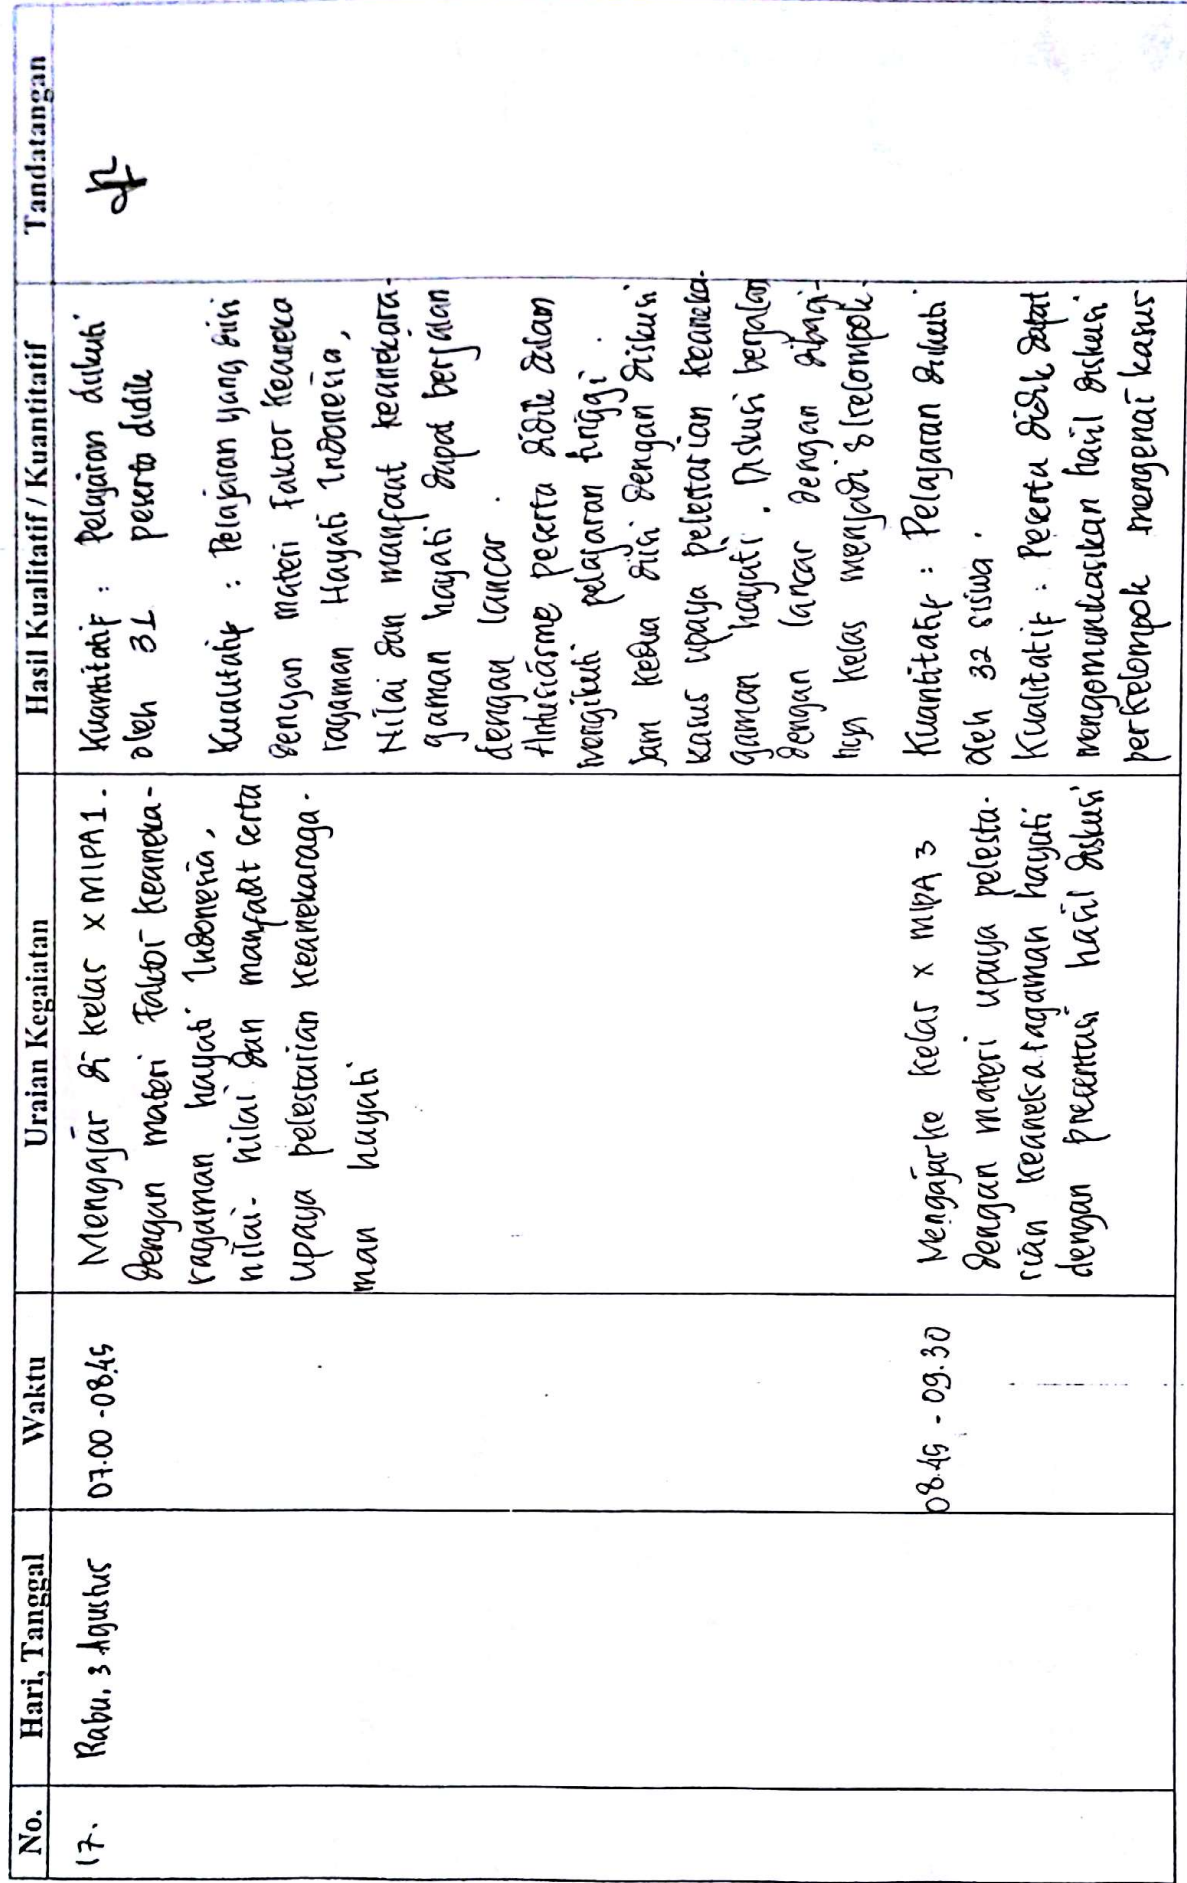 No. Hari, Tanggal Waktu Uraian Kegaiatan Hasil Kualitatif / Kuantitatif Tandatangan
17.
Rabu, 3 Agustus
07.00 - 08.45
Mengajar di kelas X MIPA 1.
dengan materi Faktor keaneka-
ragaman hayati Indonesia,
nilai-nilai dan manfaat serta
upaya pelestarian keanekaraga-
man hayati
Kuantitatif : Pelajaran diikuti
oleh 31 peserta didik
Kualitatif : Pelajaran yang diisi
dengan materi Faktor keaneka
ragaman Hayati Indonesia,
Nilai dan manfaat keanekara-
gaman hayati dapat berjalan
dengan lancar.
Antusiasme peserta didik dalam
mengikuti pelajaran tinggi.
Jam kedua diisi dengan diskusi
kasus upaya pelestarian keaneka-
gaman hayati. Diskusi berjalan
dengan lancar dengan dibagi-
nya kelas menjadi 8 kelompok.
08.45 - 09.30
Mengajar ke kelas X MIPA 3
dengan materi upaya pelesta-
rian keanekaragaman hayati
dengan presentasi hasil diskusi
Kuantitatif : Pelajaran diikuti
oleh 32 siswa.
Kualitatif : Peserta didik dapat
mengomunikasikan hasil diskusi
perkelompok mengenai kasus